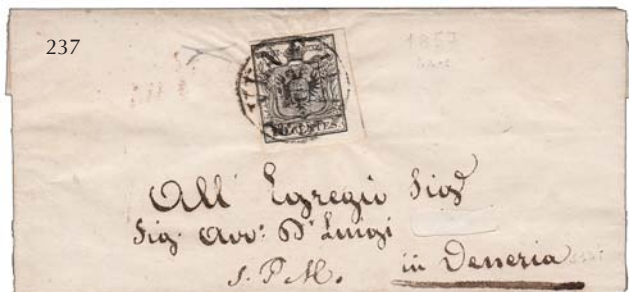 237
1857
10 CENTES.
All' Egregio Sigr
Sig. Avv: Dr Luigi
S. P. M.
in Venezia